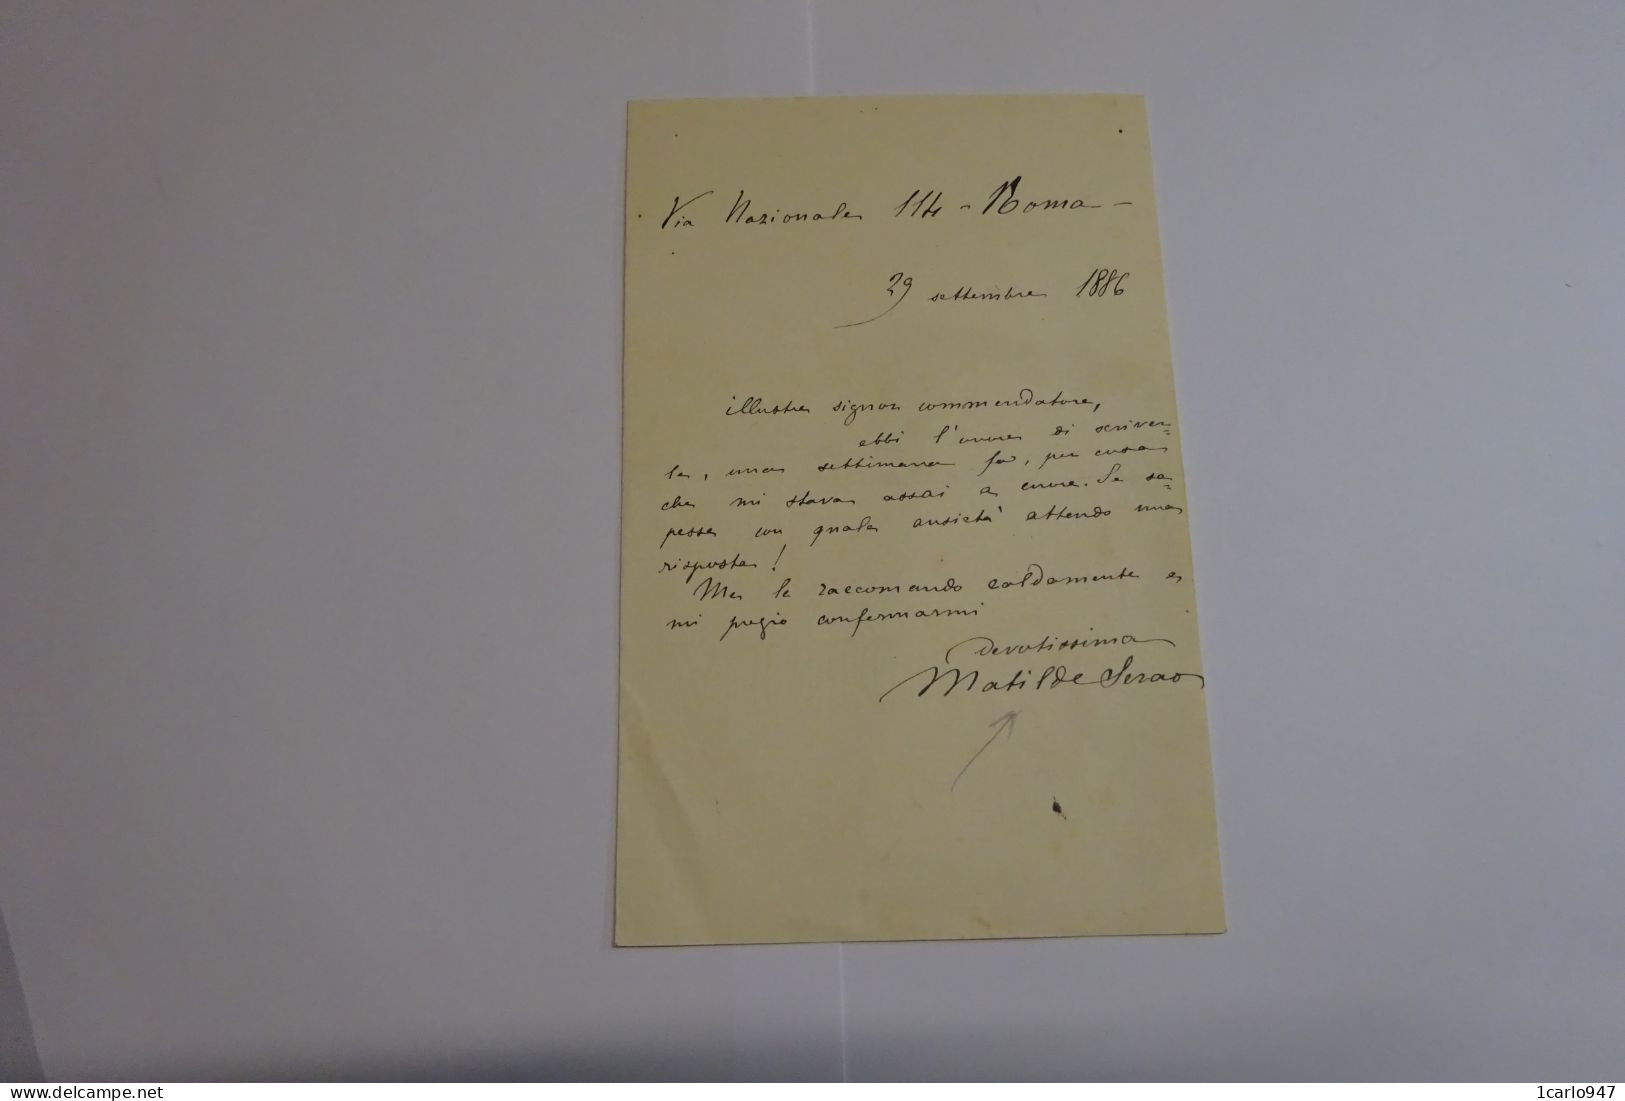 Via Nazionale 114 - Roma -
29 settembre 1886
illustre signor commendatore,
ebbi l'onore di scriver=
le, una settimana fa, per cosa
che mi stava assai a cuore. Se sa=
pesse con quale ansietà attendo una
risposta!
Me le raccomando caldamente e
mi pregio confermarmi
devotissima
Matilde Serao
delcampe.net
1carlo947